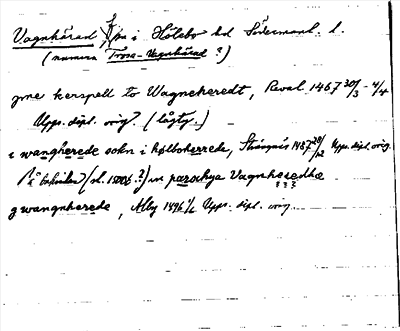 Vagnhärad, sn i Hölebo hd Södermanl. l.
(numera Trosa-Vagnhärad?)
yne kerspell to Wagnekeredt, Reval 1467 30/3 - 4/4
Upps. dipl. orig. (lågty.)
i wangherede sokn i hølboherrede, Strängnäs 1487 Upps. dipl. orig.
(sl. 1500s.?) in parochya Vagnheredhæ
???
g wangnherede, Alby 1496 Upps. dipl. orig.